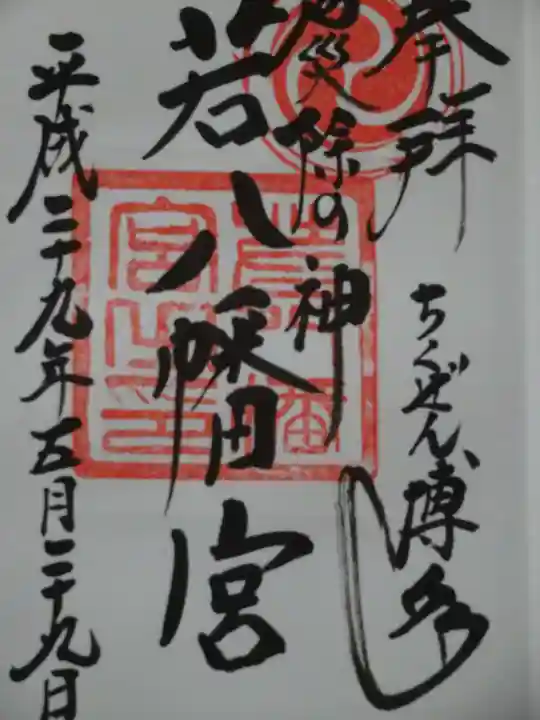 奉拝
ちくぜん博多
災除の神
若八幡宮
平成二十九年五月二十九日